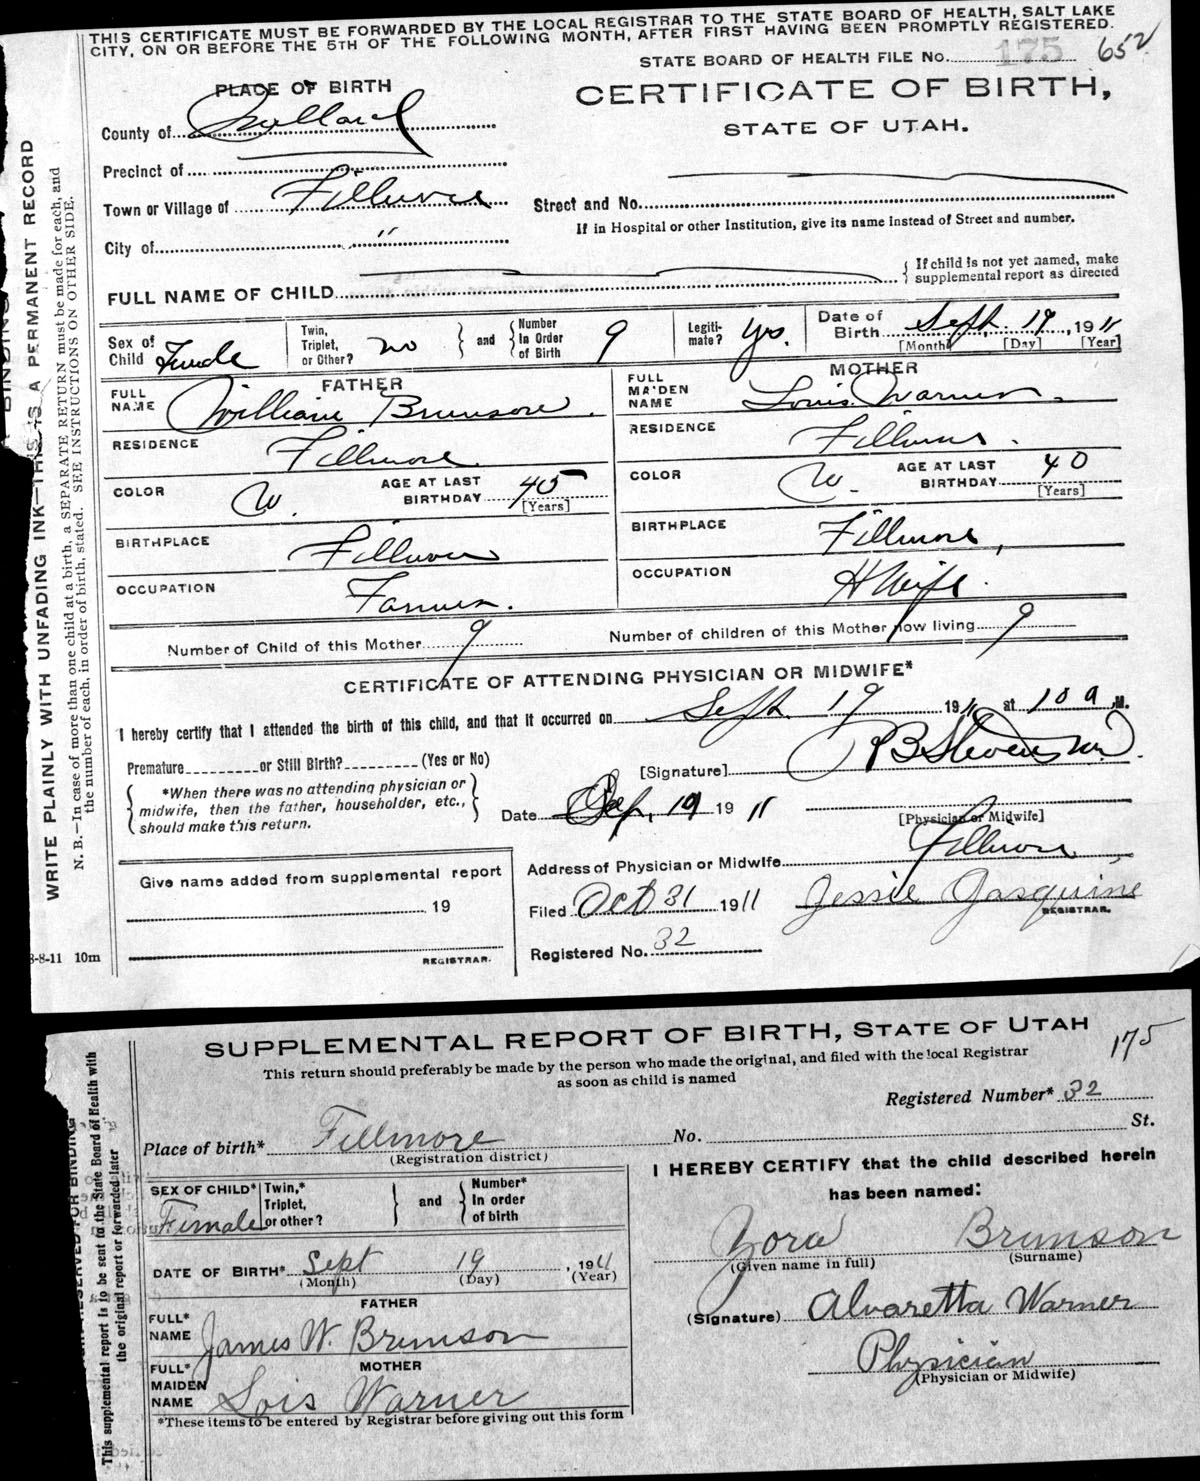 THIS CERTIFICATE MUST BE FORWARDED BY THE LOCAL REGISTRAR TO THE STATE BOARD OF HEALTH, SALT LAKE
CITY, ON OR BEFORE THE 5TH OF THE FOLLOWING MONTH, AFTER FIRST HAVING BEEN PROMPTLY REGISTERED.
STATE BOARD OF HEALTH FILE No. 175 652
PLACE OF BIRTH
CERTIFICATE OF BIRTH,
STATE OF UTAH.
County of Millard
Precinct of
Town or Village of Fillmore
Street and No.
If in Hospital or other Institution, give its name instead of Street and number.
City of "
FULL NAME OF CHILD
If child is not yet named, make
supplemental report as directed
Sex of Child Female
Twin, Triplet, or Other? no and Number In Order of Birth 9
Legiti-mate? Yes.
Date of Birth Sept. 19, 1911
[Month] [Day] [Year]
FATHER
FULL NAME William Brunson.
RESIDENCE Fillmore.
COLOR W. AGE AT LAST BIRTHDAY 45
[Years]
BIRTHPLACE Fillmore
OCCUPATION Farmer.
MOTHER
FULL MAIDEN NAME Louis Warner.
RESIDENCE Fillmore.
COLOR W. AGE AT LAST BIRTHDAY 40
[Years]
BIRTHPLACE Fillmore,
OCCUPATION H Wife.
Number of Child of this Mother 9 Number of children of this Mother now living 9
CERTIFICATE OF ATTENDING PHYSICIAN OR MIDWIFE*
I hereby certify that I attended the birth of this child, and that it occurred on Sept. 19 1911 at 10 a M.
Premature or Still Birth? (Yes or No)
[Signature] RB Stevenson
*When there was no attending physician or
midwife, then the father, householder, etc.,
should make this return.
Date Sep, 19 1911
[Physician or Midwife]
Address of Physician or Midwife Fillmore
Give name added from supplemental report
19
REGISTRAR.
Filed Oct 31 1911 Jessie Gasquine
REGISTRAR.
Registered No. 32
8-8-11 10m
WRITE PLAINLY WITH UNFADING INK—THIS IS A PERMANENT RECORD
N. B.—In case of more than one child at a birth, a SEPARATE RETURN must be made for each, and
the number of each, in order of birth, stated. SEE INSTRUCTIONS ON OTHER SIDE.
SUPPLEMENTAL REPORT OF BIRTH, STATE OF UTAH
175
This return should preferably be made by the person who made the original, and filed with the local Registrar
as soon as child is named
Registered Number* 32
Place of birth* Fillmore No. St.
(Registration district)
SEX OF CHILD* Female
Twin,* Triplet, or other? and Number* In order of birth
DATE OF BIRTH* Sept 19, 1911
(Month) (Day) (Year)
FATHER
FULL* NAME James W. Brunson
MOTHER
FULL* MAIDEN NAME Lois Warner
*These items to be entered by Registrar before giving out this form
I HEREBY CERTIFY that the child described herein
has been named:
Zora Brunson
(Given name in full) (Surname)
(Signature) Alvaretta Warner
Physician
(Physician or Midwife)
RESERVED FOR BINDING
This supplemental report is to be sent to the State Board of Health with
the original report or forwarded later